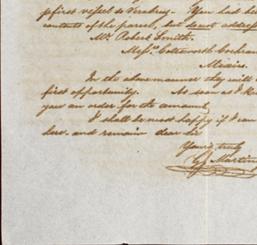 first vessel to Veracruz - You had be
contents of the parcel, but dont address
Mr. Robert Smith.
Messrs
Mexico.
In the above manner they will
first opportunity. As soon as I
you an order for the amount,
I shall be most happy if I can
here and remain dear sir
Yours truly
Martin